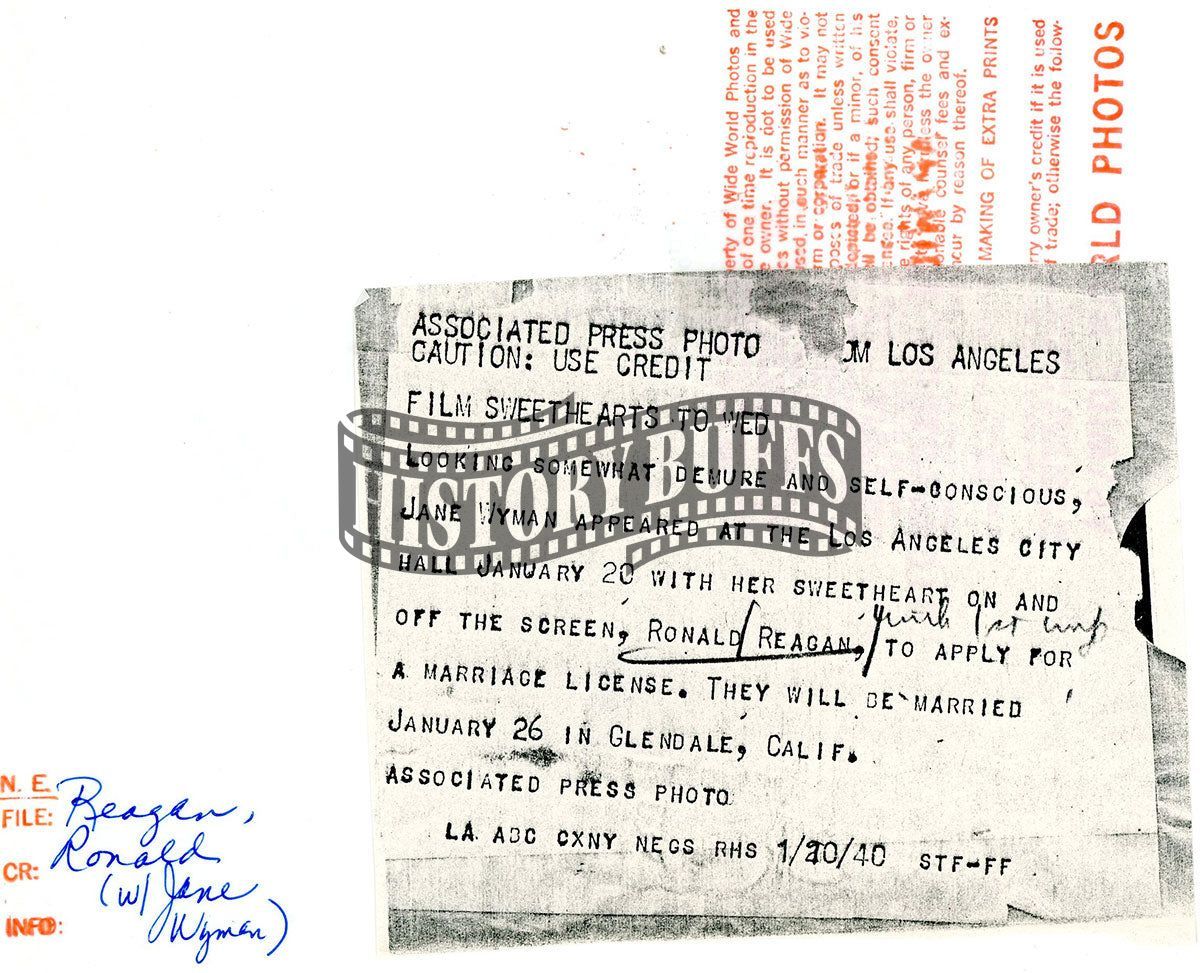 erty of Wide World Photos and
of one time reproduction in the
e owner. It is not to be used
es without permission of Wide
sed in such manner as to vio-
rm or corporation. It may not
poses of trade unless written
depicted, or if a minor, of his
ll be obtained; such consent
ense. If any use shall violate,
e rights of any person, firm or
harmless the owner
onable counsel fees and ex-
ncur by reason thereof.
MAKING OF EXTRA PRINTS
rry owner's credit if it is used
f trade; otherwise the follow-
RLD PHOTOS
ASSOCIATED PRESS PHOTO OM LOS ANGELES
CAUTION: USE CREDIT
FILM SWEETHEARTS TO WED
LOOKING SOMEWHAT DEMURE AND SELF-CONSCIOUS,
JANE WYMAN APPEARED AT THE LOS ANGELES CITY
HALL JANUARY 20 WITH HER SWEETHEART ON AND
with 1st
OFF THE SCREEN, RONALD REAGAN, TO APPLY FOR
A MARRIAGE LICENSE. THEY WILL BE MARRIED
JANUARY 26 IN GLENDALE, CALIF.
ASSOCIATED PRESS PHOTO
LA ABC CXNY NEGS RHS 1/20/40 STF-FF
HISTORY BUFFS
N. E.
FILE: Reagan,
Ronald
CR: (w/ Jane
Wyman)
INFO: